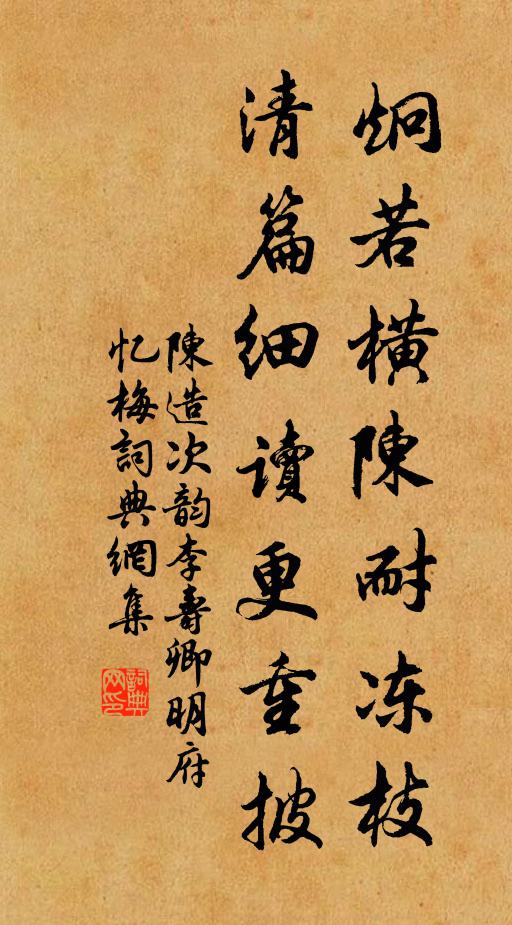 炯若橫陳耐冻枝
清篇细读更重披
陳造次韵李壽卿明府
忆梅詞典網集
詞典
网印